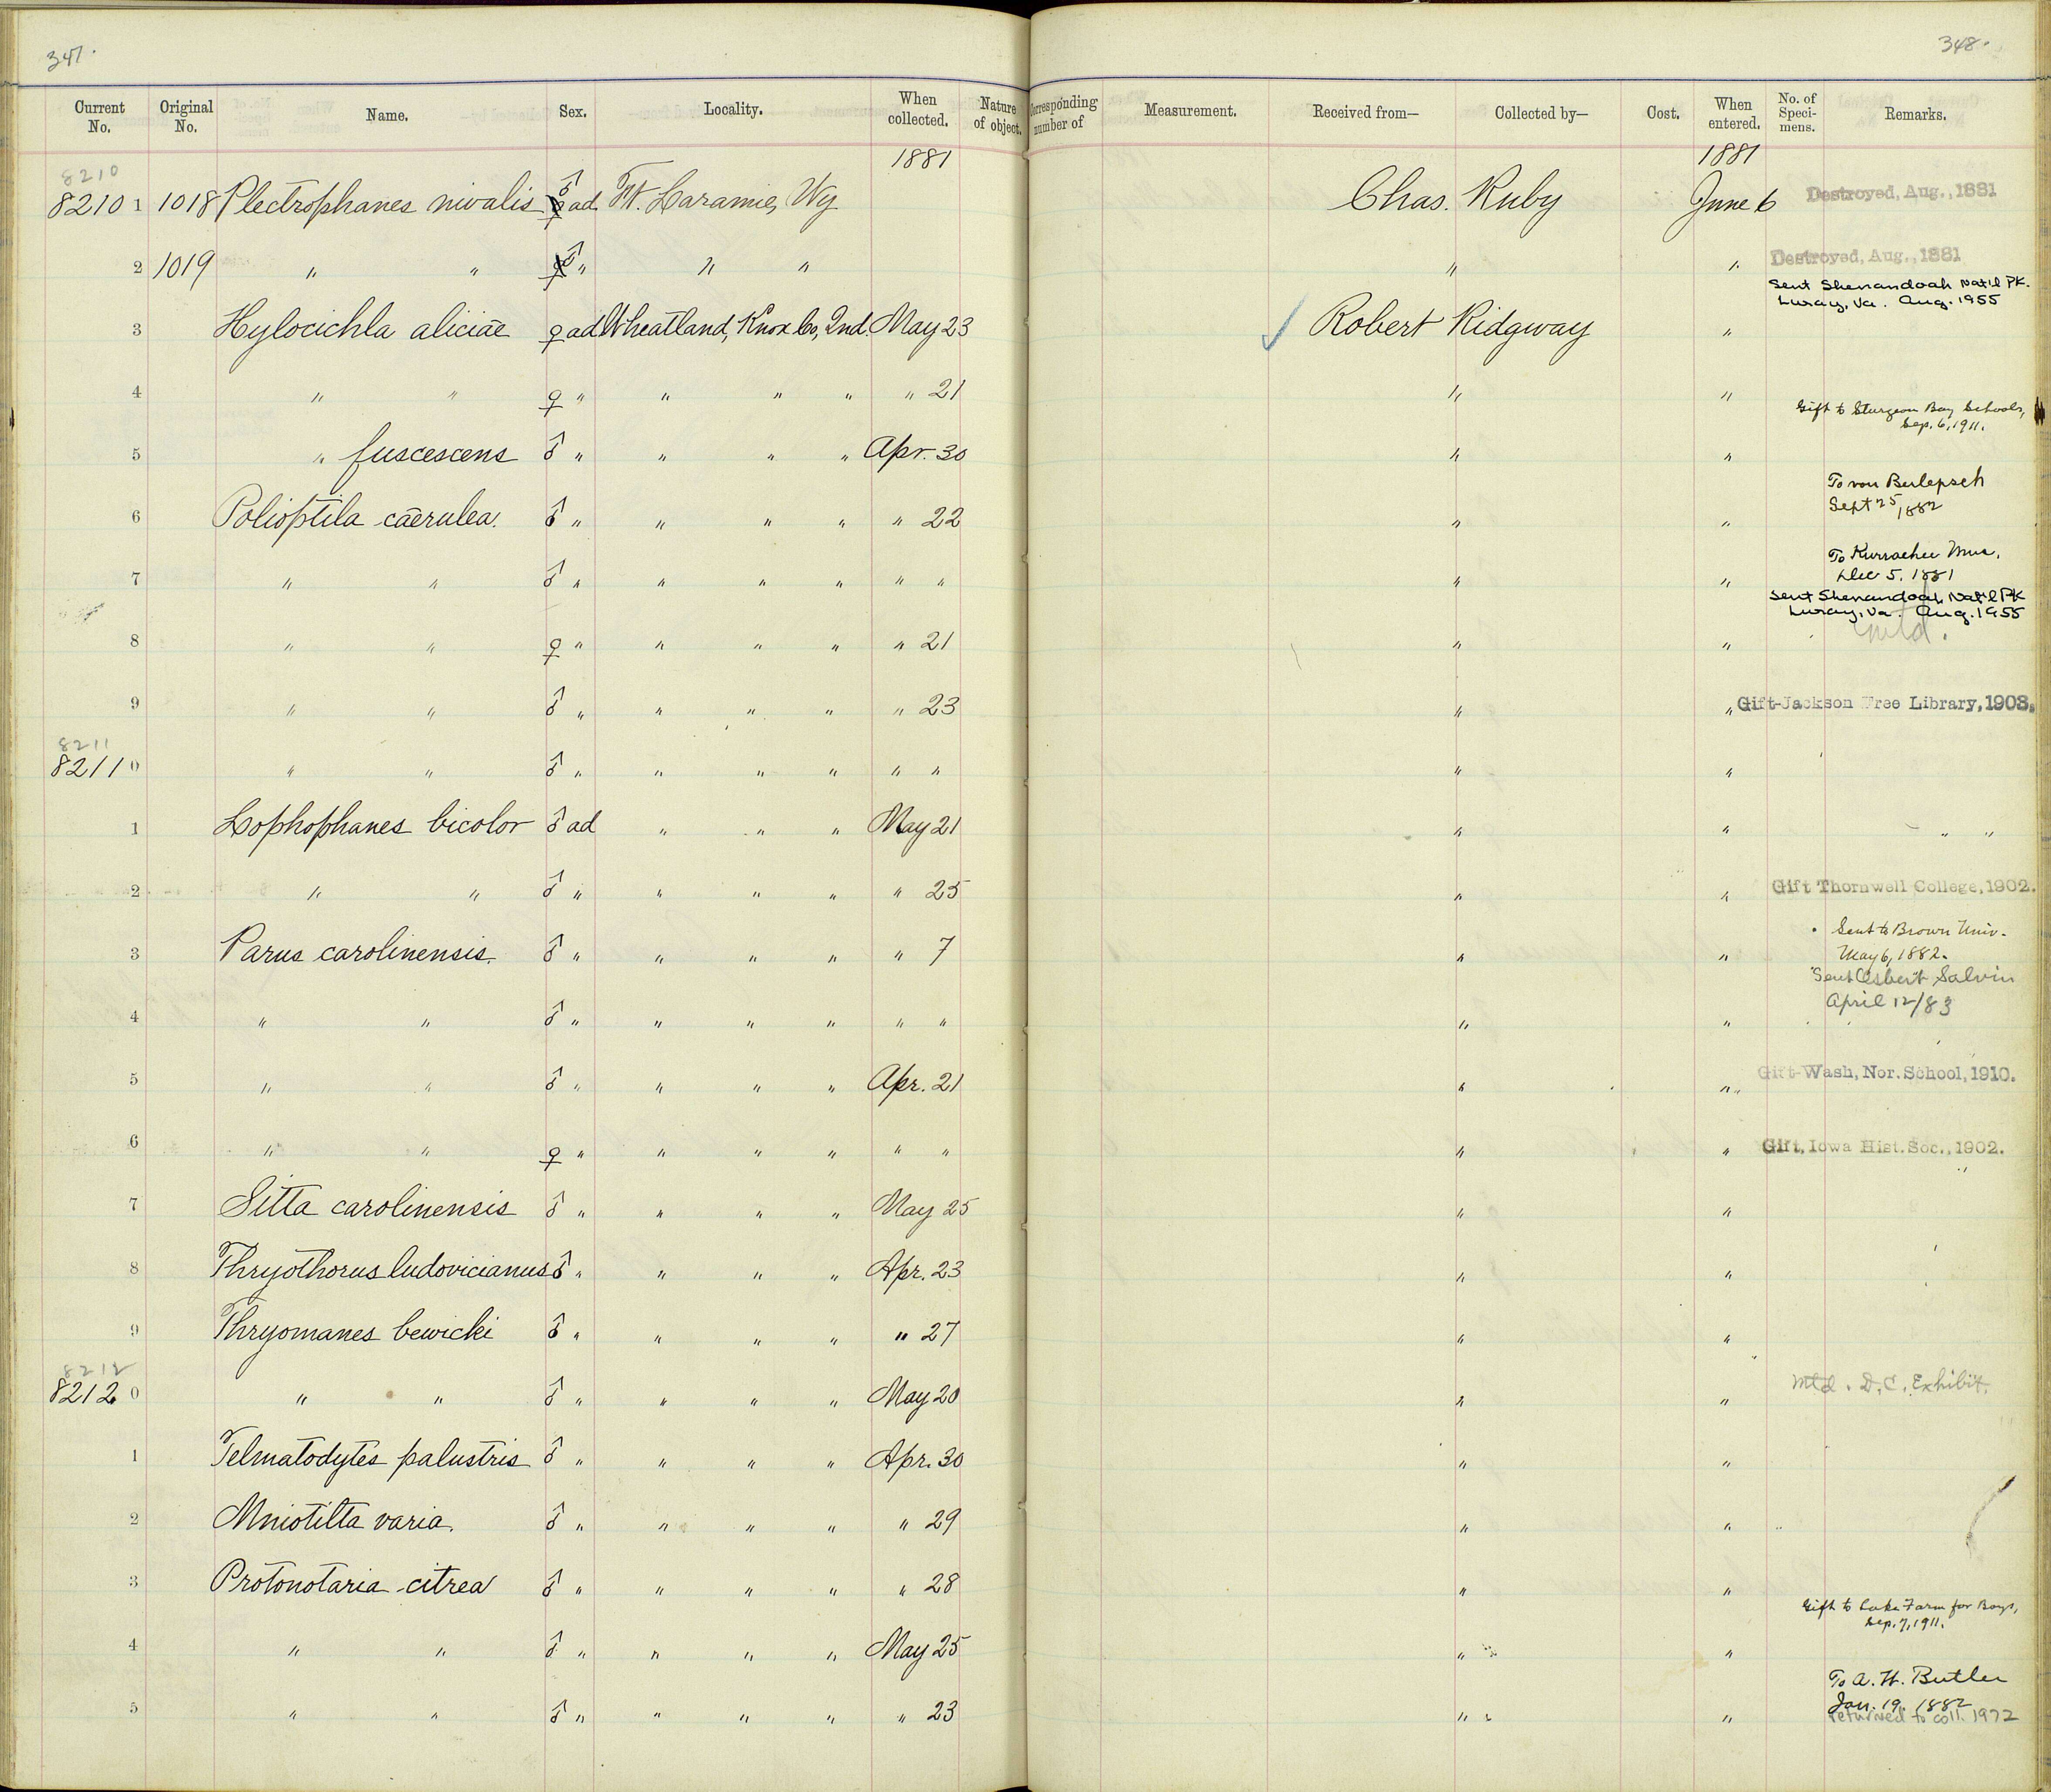 347.
348.
Current No. Original No. Name. Sex. Locality. When collected. Nature of object. Corresponding number of Measurement. Received from— Collected by— Cost. When entered. No. of Specimens. Remarks.
1881 1881
8210
82101 1018 Plectrophanes nivalis ♂ ad. Ft. Laramie, Wy Chas. Ruby June 6 Destroyed, Aug., 1881
2 1019 " " ♂ " " " " " Destroyed, Aug., 1881
Sent Shenandoah Nat'l Pk.
Luray, Va. Aug. 1955
3 Hylocichla aliciae ♀ ad Wheatland, Knox Co, Ind. May 23 ✓ Robert Ridgway "
4 " " ♀ " " " " " 21 " "
Gift to Sturgeon Bay Schools,
Sep. 6, 1911.
5 " fuscescens ♂ " " " " Apr. 30 " "
To von Berlepsch
Sept 25, 1882
6 Polioptila caerulea. ♂ " " " " " 22 " "
To Kurrachee Mus.
Dec 5. 1881
7 " " ♂ " " " " " " " "
Sent Shenandoah Nat'l Pk
Luray, Va. Aug. 1955
mtd.
8 " " ♀ " " " " " 21 " "
9 " " ♂ " " " " " 23 " " Gift-Jackson Free Library, 1903.
8211
82110 " " ♂ " " " " " " " "
1 Lophophanes bicolor ♂ ad " " " May 21 " " " "
2 " " ♂ " " " " " 25 " " Gift Thornwell College, 1902.
Sent to Brown Univ.
3 Parus carolinensis. ♂ " " " " " 7 " " May 6, 1882.
Sent Osbert Salvin
April 12/83
4 " " ♂ " " " " " " " "
5 " " ♂ " " " " Apr. 21 " " Gift-Wash, Nor. School, 1910.
6 " " ♀ " " " " " " " " Gift, Iowa Hist. Soc., 1902.
7 Sitta carolinensis ♂ " " " " May 25 " "
8 Thryothorus ludovicianus ♂ " " " " Apr. 23 " "
9 Thryomanes bewicki ♂ " " " " " 27 " "
8212
82120 " " ♂ " " " " May 20 " " Mtd. D.C. Exhibit.
1 Telmatodytes palustris ♂ " " " " Apr. 30 " "
2 Mniotilta varia. ♂ " " " " " 29 " "
3 Protonotaria citrea ♂ " " " " " 28 " "
Gift to Lake Farm for Boys,
Sep. 7, 1911.
4 " " ♂ " " " " May 25 " "
To A. W. Butler
Jan. 19. 1882
5 " " ♂ " " " " " 23 " " returned to coll. 1972